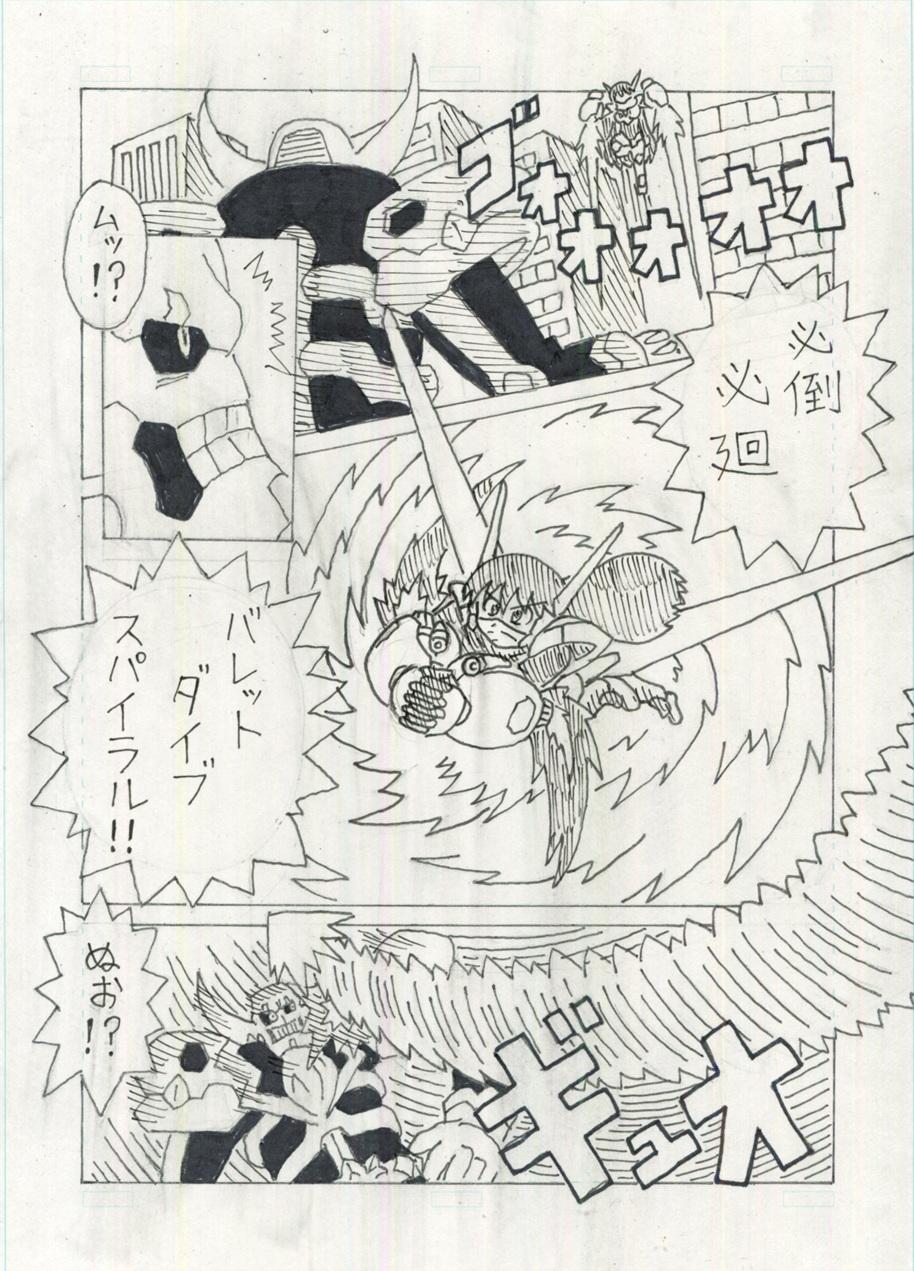 ゴォォォオオ
ムッ!?
必倒
必廻
バレット
ダイブ
スパイラル!!
ぬお!?
ギュオ